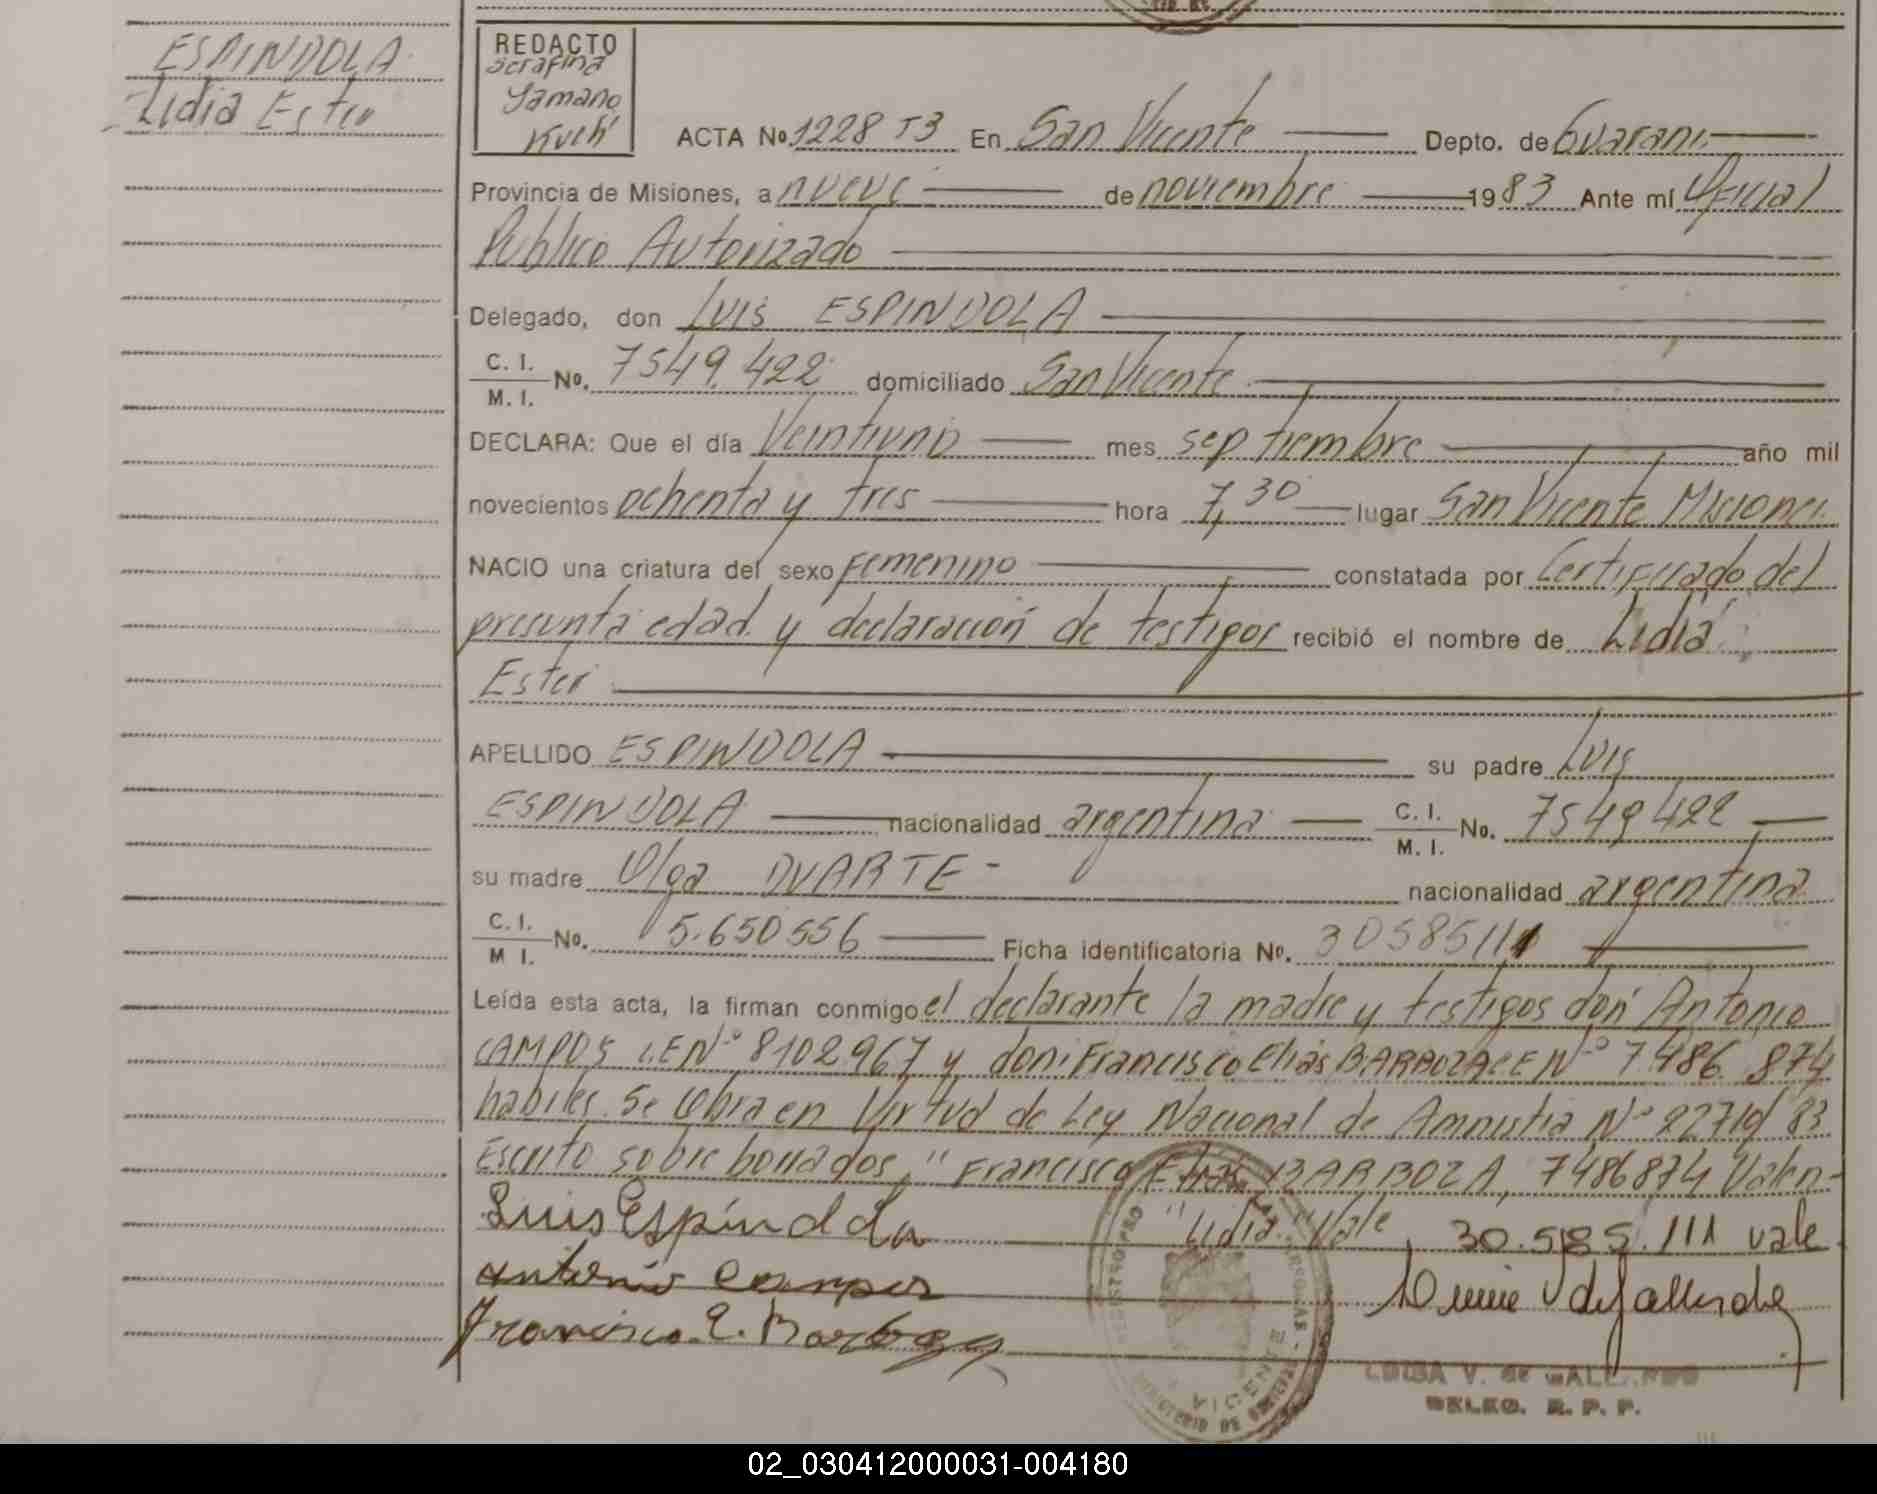 ESPINDOLA
Lidia Ester
REDACTO
Serafina
Yamano
Kuchi
ACTA No 1228 T3 En San Vicente Depto. de Guarani
Provincia de Misiones, a nueve de noviembre 1983 Ante mí Oficial
Publico Autorizado
Delegado, don Luis ESPINDOLA
C. I.
M. I. No. 7549.422 domiciliado San Vicente
DECLARA: Que el día Veintiuno mes septiembre año mil
novecientos ochenta y tres hora 7,30 lugar San Vicente Misiones
NACIO una criatura del sexo Femenino constatada por Certificado de
presunta edad y declaración de testigos recibió el nombre de Lidia
Ester
APELLIDO ESPINDOLA su padre Luis
ESPINDOLA nacionalidad argentina C. I.
M. I. No. 7549422
su madre Olga DUARTE - nacionalidad argentina
C. I.
M I. No. 5.650556 Ficha identificatoria No. 30585111
Leída esta acta, la firman conmigo el declarante la madre y testigos don Antonio
CAMPOS Nº 8102967 y don: Francisco Elias BARBOZA Nº 7.486.874
habiles. Se labra en Virtud de Ley Nacional de Amnistia Nº 22710/83
Escrito sobre borrados, "Francisco Elias BARBOZA, 7486874 Valen-
Luis Espíndola "Lidia" Vale, 30.585.111 vale
Antonio Campos
Francisco E. Barboza
LUISA V. de
DELEG. R. P. P.
02_030412000031-004180